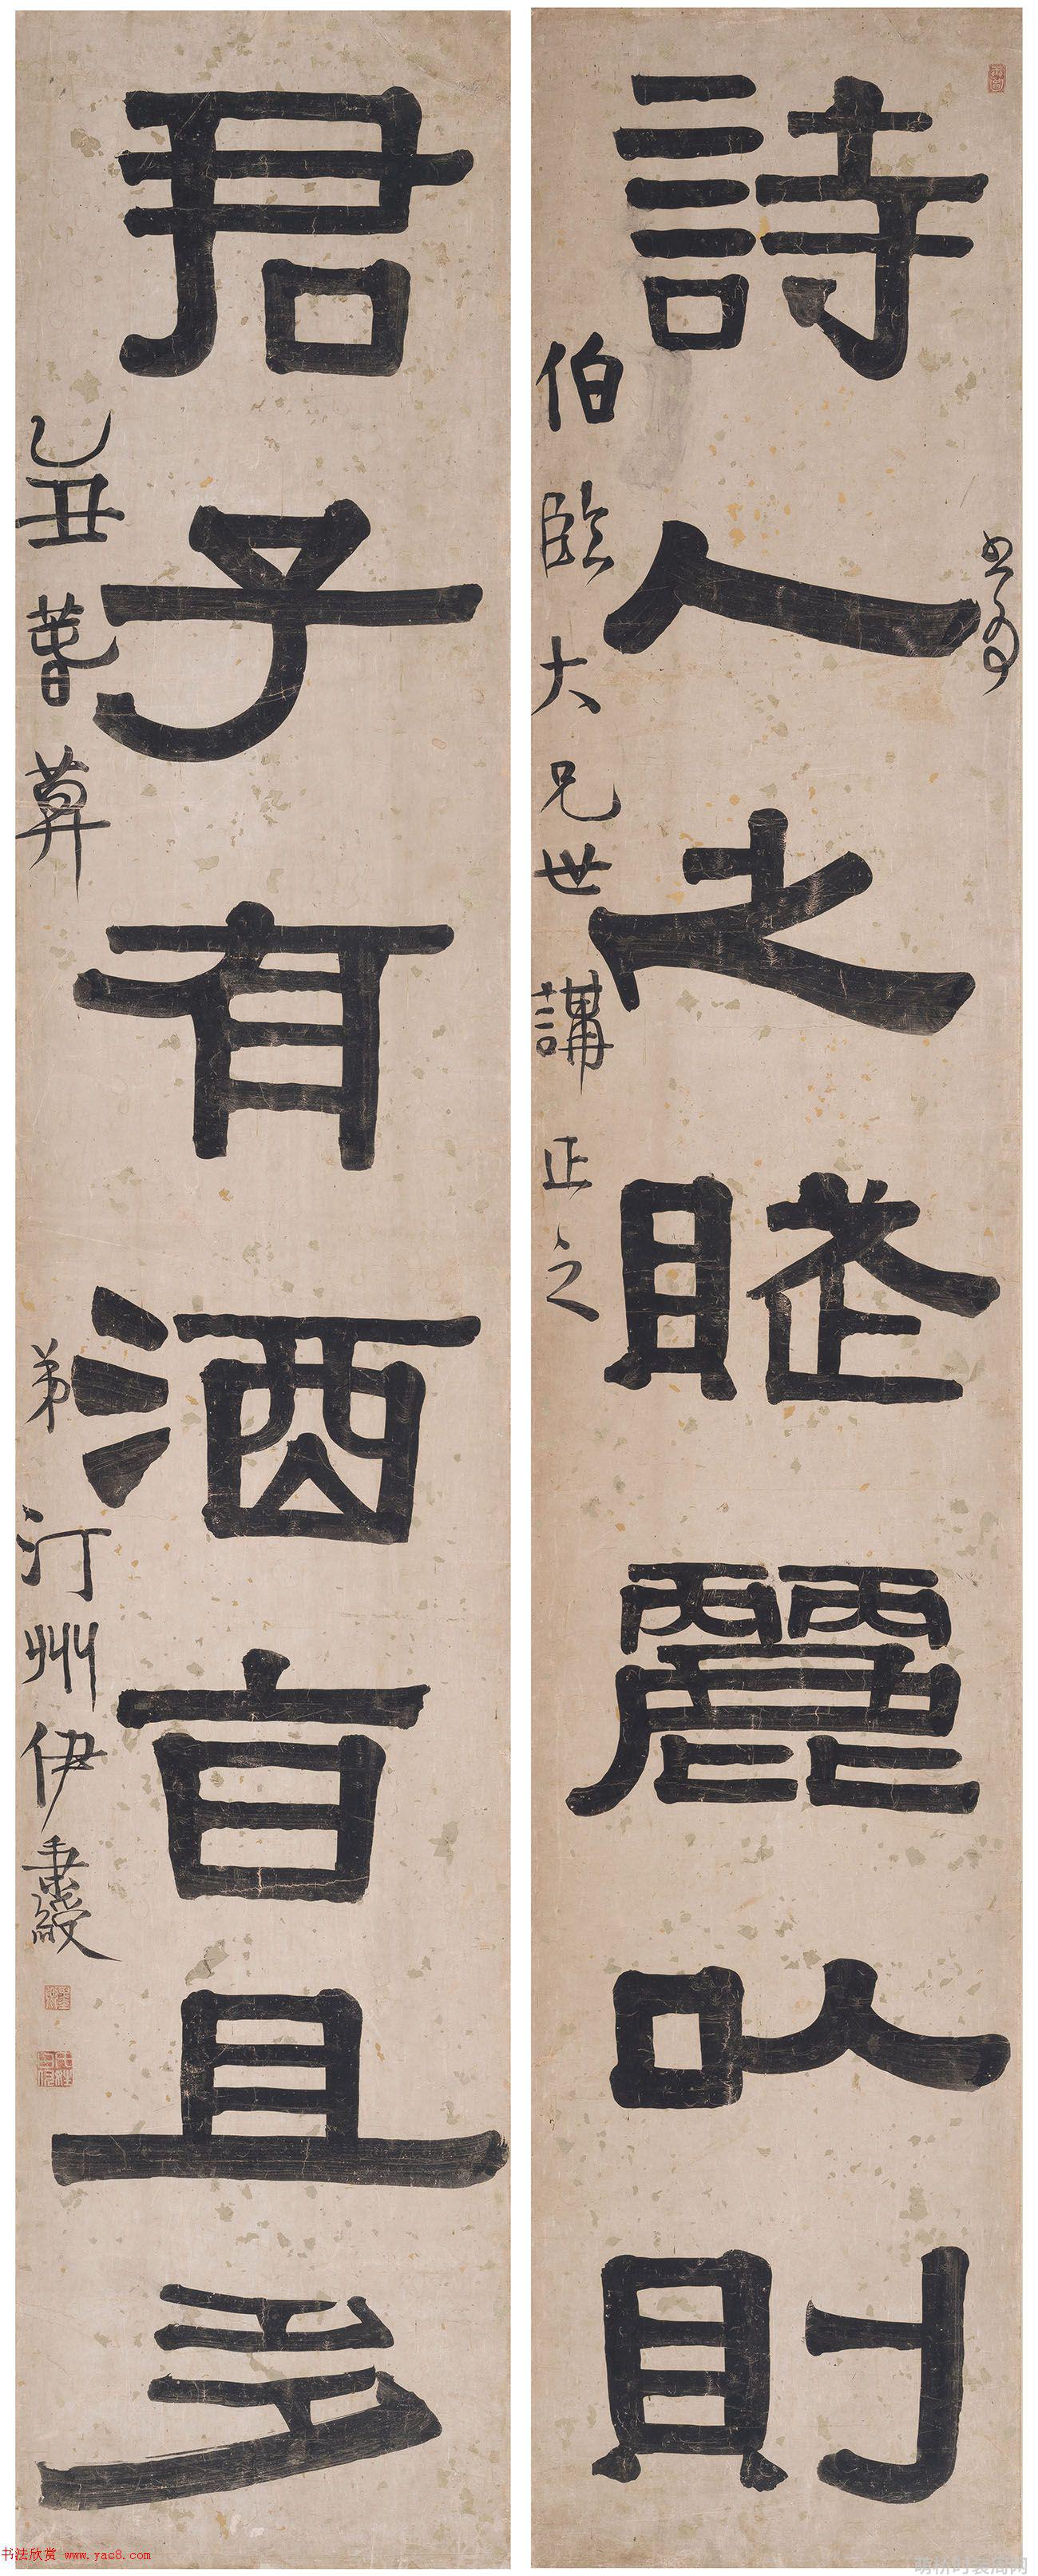 詩人之賦麗以則
書為
伯臨大兄世講正之
君子有酒旨且多
乙丑萅莫
弟汀州伊秉綬
书法欣赏 www.yac8.com